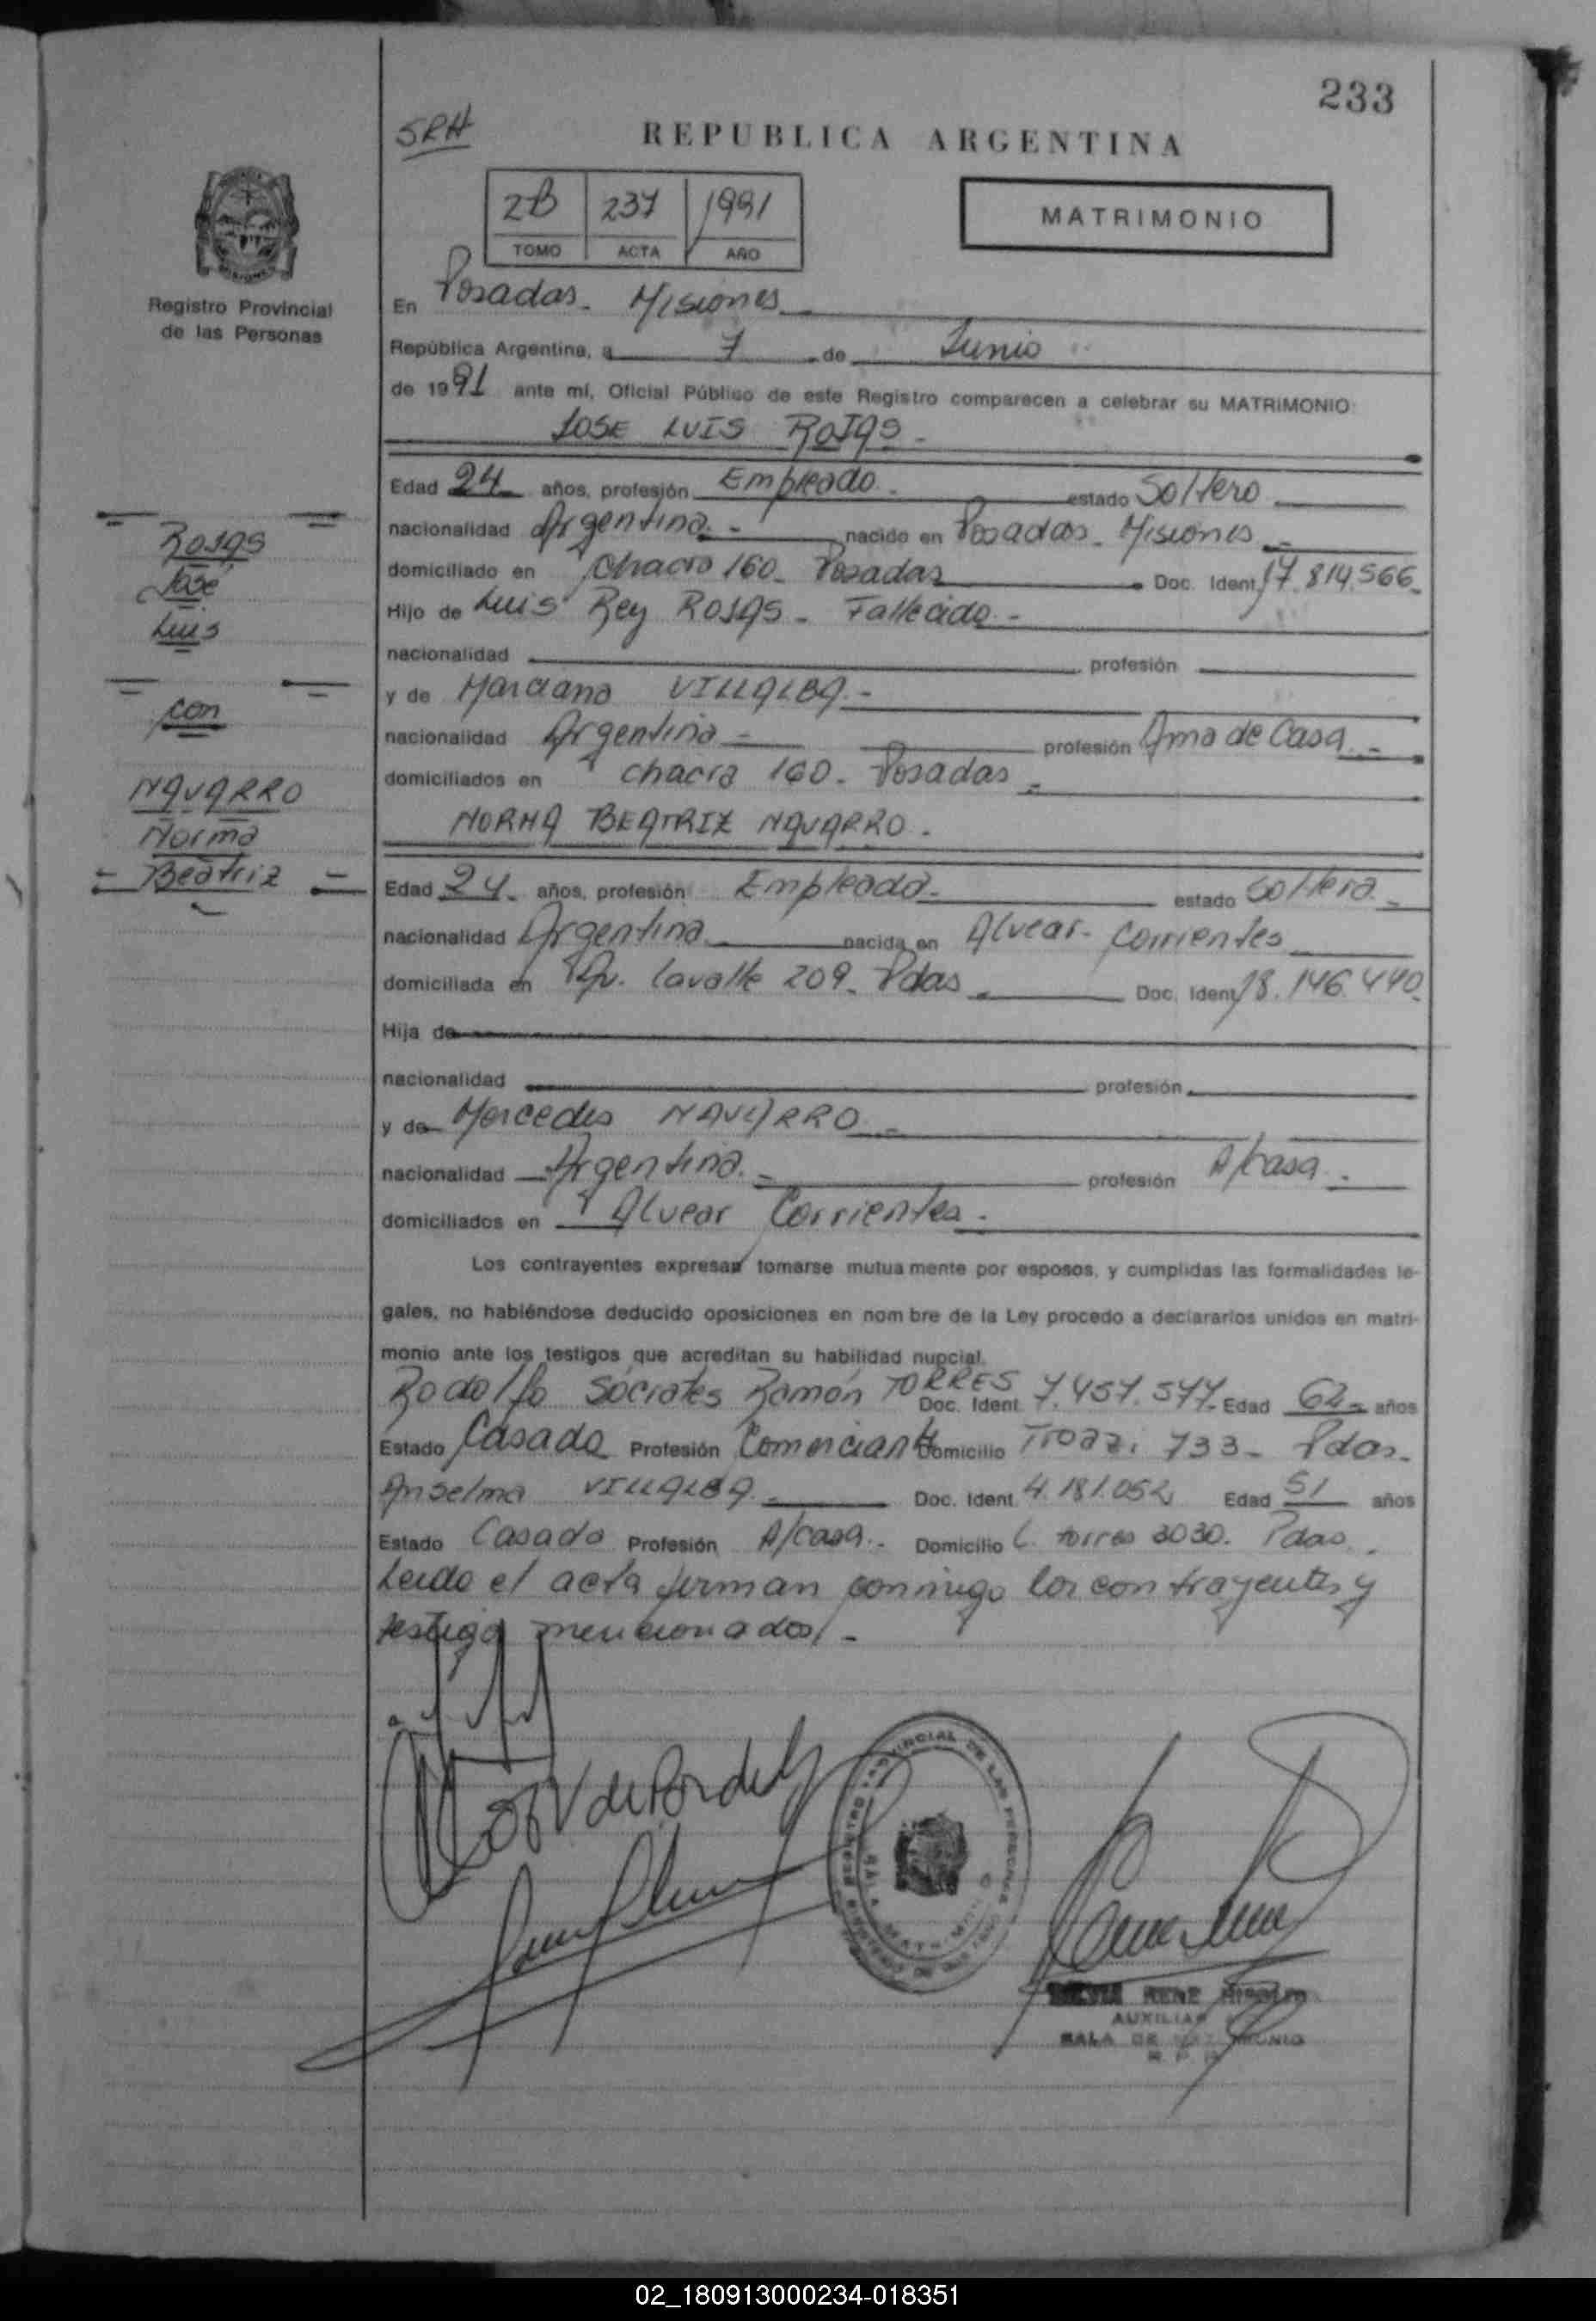 233
SRH
REPUBLICA ARGENTINA
2B 237 1991
TOMO ACTA AÑO
MATRIMONIO
Registro Provincial
de las Personas
En Posadas - Misiones
República Argentina, a 7 de Junio
de 1991 ante mí, Oficial Público de este Registro comparecen a celebrar su MATRIMONIO:
JOSE LUIS ROJAS.-
Edad 24 años, profesión Empleado.- estado Soltero
nacionalidad Argentina.- nacido en Posadas - Misiones.-
domiciliado en Chacra 160 - Posadas Doc. Ident. 17.814.566.
Hijo de Luis Rey ROJAS - Fallecido.-
nacionalidad profesión
y de Marciana VILLALBA.-
nacionalidad Argentina - profesión Ama de Casa.-
domiciliados en chacra 160 - Posadas.-
ROJAS
José
Luis
con
NAVARRO
Norma
- Beatriz -
NORMA BEATRIZ NAVARRO.
Edad 24. años, profesión Empleada.- estado Soltera.-
nacionalidad Argentina nacida en Alvear - Corrientes
domiciliada en Av. Lavalle 209 - Pdas.- Doc. Ident. 18.146.440.
Hija de
nacionalidad profesión
y de Mercedes NAVARRO.-
nacionalidad Argentina.- profesión A/casa.-
domiciliados en Alvear Corrientes.-
Los contrayentes expresan tomarse mutuamente por esposos, y cumplidas las formalidades le-
gales, no habiéndose deducido oposiciones en nombre de la Ley procedo a declararlos unidos en matri-
monio ante los testigos que acreditan su habilidad nupcial.
Rodolfo Sócrates Ramón TORRES Doc. Ident. 7.457.577. Edad 62 - años
Estado Casado Profesión Comerciante Domicilio 733 - Pdas.
Anselma VILLALBA.- Doc. Ident. 4.181.052 Edad 51 años
Estado Casada Profesión A/casa.- Domicilio C. torres 3030. Pdas.
Leida el acta firman conmigo los contrayentes y
testigos mencionados.-
REGISTRO PROVINCIAL DE LAS PERSONAS
RENE
AUXILIAR
SALA DE MATRIMONIO
R. P. P.
02_180913000234-018351